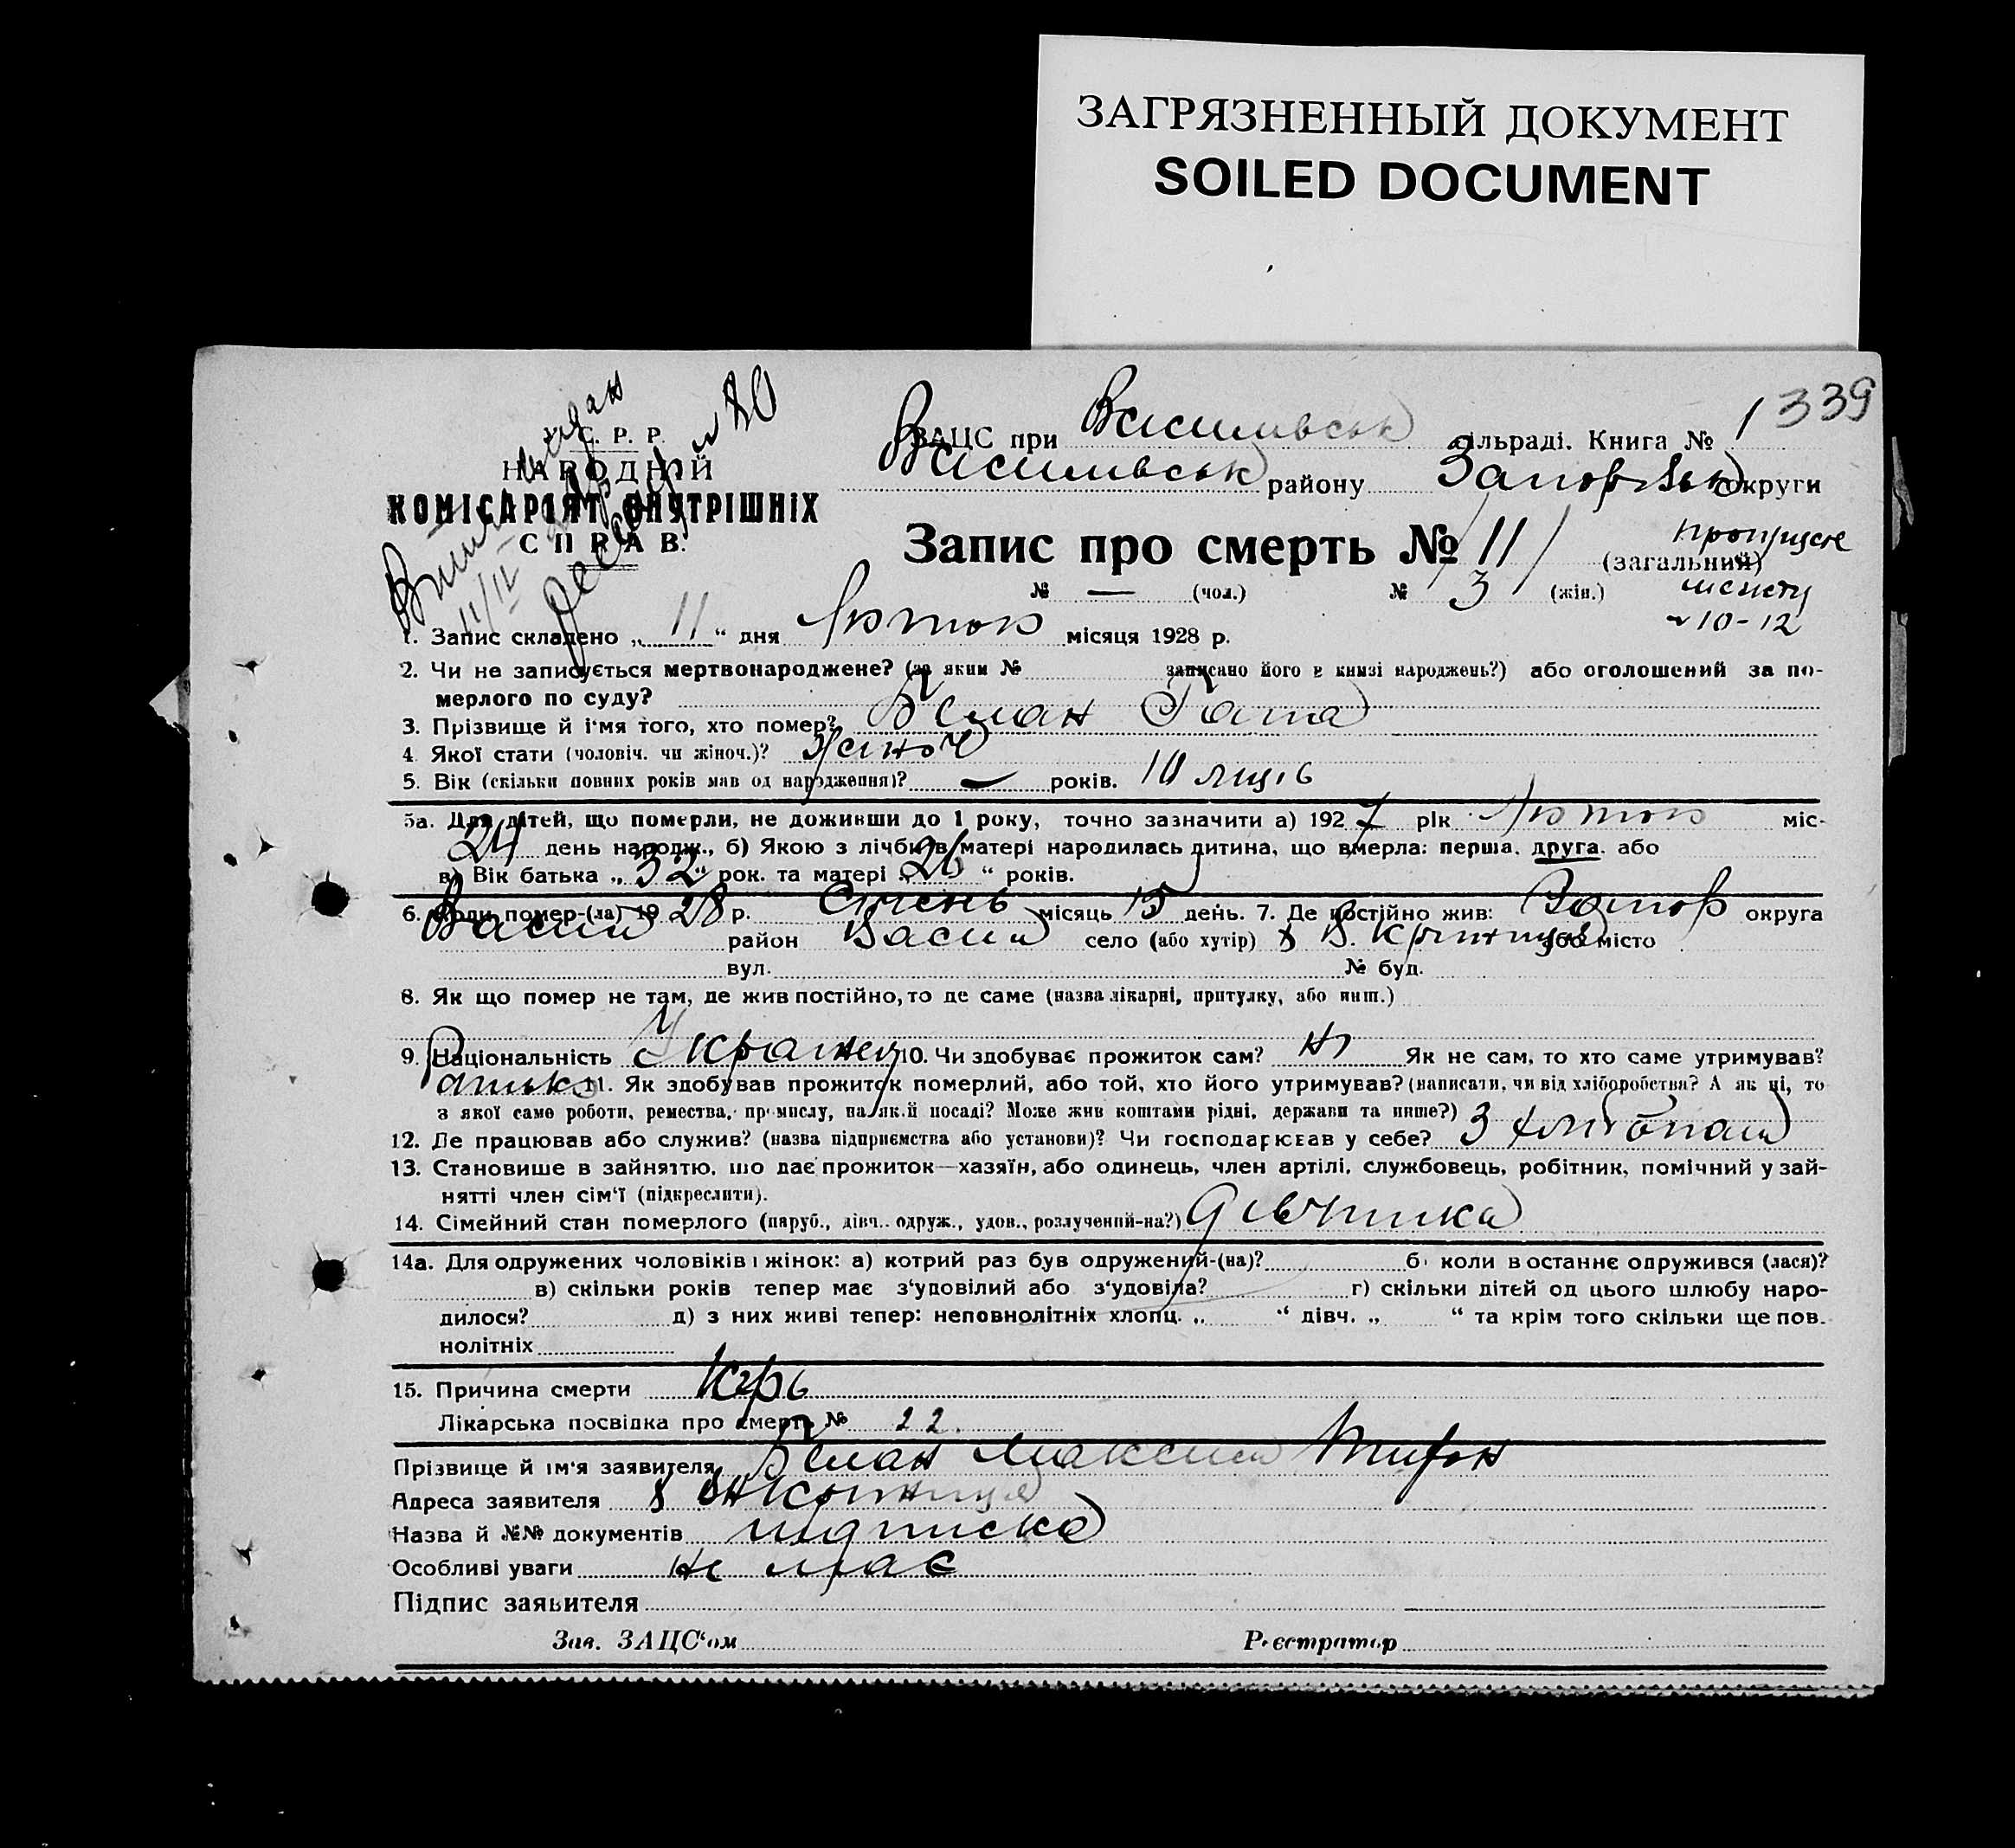 ЗАГРЯЗНЕННЫЙ ДОКУМЕНТ
SOILED DOCUMENT
339
У. С. Р. Р.
НАРОДНІЙ
КОМІСАРІЯТ ВНУТРІШНІХ
СПРАВ.
ЗАЦС при Василивськ сільраді. Книга № 1
Василивськ району Запорізьк округи
Запис про смерть № 11 (загальний)
№ — (чол.) № 3 (жін.)
~10-12
1. Запис складено „ 11 “ дня Лютого місяця 1928 р.
2. Чи не записується мертвонароджене? (за яким № записано його в книзі народжень?) або оголошений за по-
мерлого по суду?
3. Прізвище й ім‘я того, хто помер? Беман
4. Якої стати (чоловіч. чи жіноч.)? Жіноч
5. Вік (скільки повних років мав од народження)? — років. 10 місів
5а. Для дітей, що померли, не доживши до 1 року, точно зазначити а) 1927 рік Лютого міс-
24 день народж., б) Якою з лічби в матері народилась дитина, що вмерла: перша, друга. або
в) Вік батька „ 32 “ рок. та матері „ 26 “ років.
6. Коли помер-(ла) 1928 р. Січень місяць 15 день. 7. Де постійно жив: Запор округа
Васил район Васил село (або хутір) або місто
вул. № буд.
8. Як що помер не там, де жив постійно, то де саме (назва лікарні, притулку, або инш.)
9. Національність Украінец 10. Чи здобуває прожиток сам? Ні Як не сам, то хто саме утримував?
Батько 11. Як здобував прожиток померлий, або той, хто його утримував? (написати, чи від хліборобства? А як ні, то
з якої саме роботи, ремества, промислу, на якій посаді? Може жив коштами рідні, держави та инше?)
12. Де працював або служив? (назва підприємства або установи)? Чи господарював у себе?
13. Становище в зайняттю, що дає прожиток—хазяїн, або одинець, член артілі, службовець, робітник, помічний у зай-
нятті член сім‘ї (підкреслити).
14. Сімейний стан померлого (паруб., дівч.. одруж., удов., розлучений-на?) Дівчинка
14а. Для одружених чоловіків і жінок: а) котрий раз був одружений-(на)? б) коли в останнє одружився (лася)?
в) скільки років тепер має з‘удовілий або з‘удовіла? г) скільки дітей од цього шлюбу наро-
дилося? д) з них живі тепер: неповнолітніх хлопц. „ “ дівч. „ “ та крім того скільки ще пов.
нолітніх
15. Причина смерти Кірь
Лікарська посвідка про смерть № 22.
Прізвище й ім‘я заявителя Беман Максим
Адреса заявителя
Назва й №№ документів підписка
Особливі уваги не має
Підпис заявителя
Зав. ЗАЦС‘ом Реєстратор